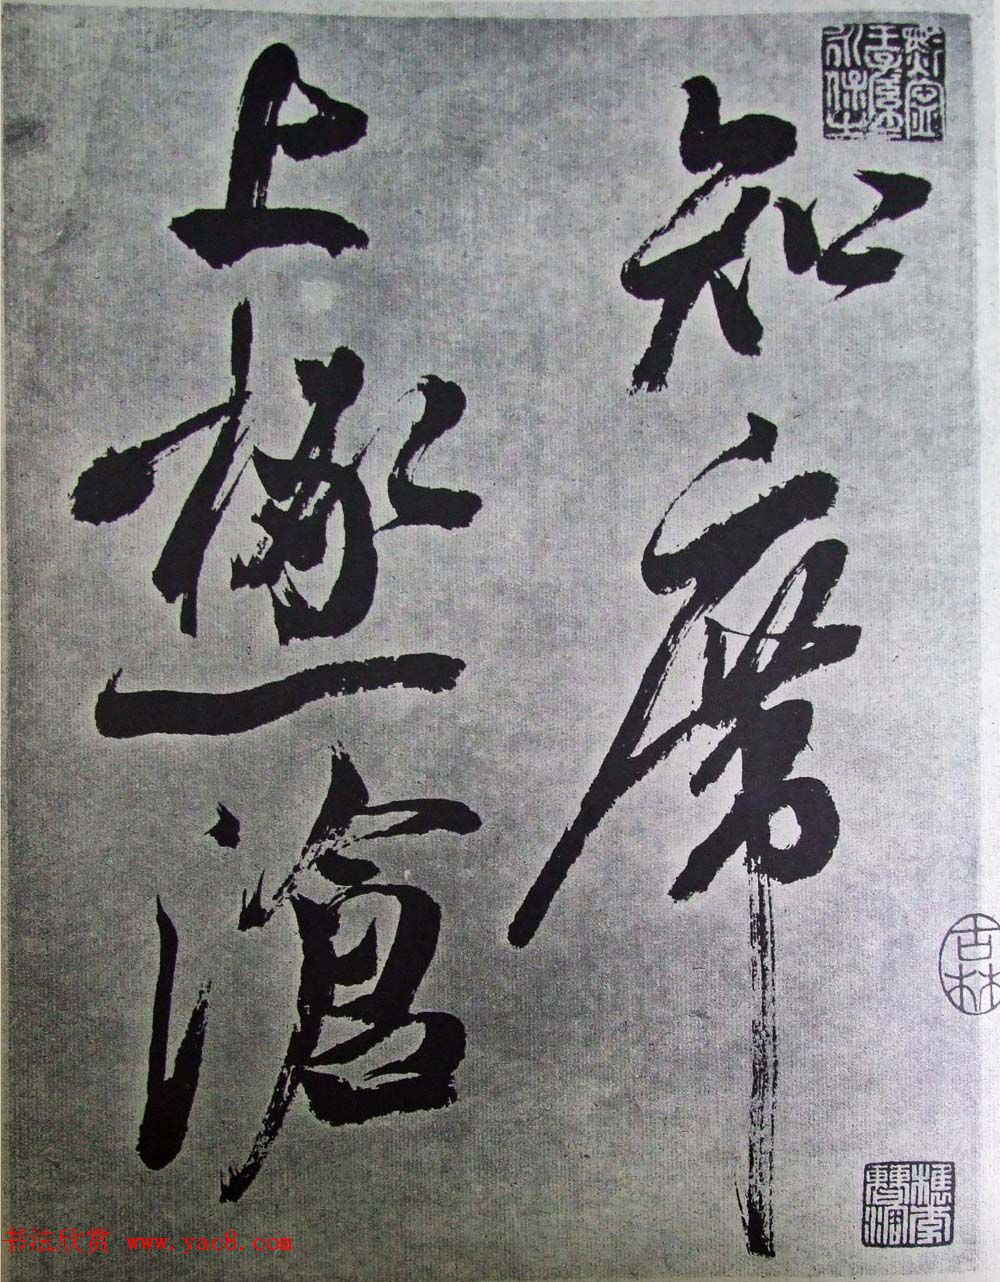 知席
上極滄
书法欣赏 www.yac8.com